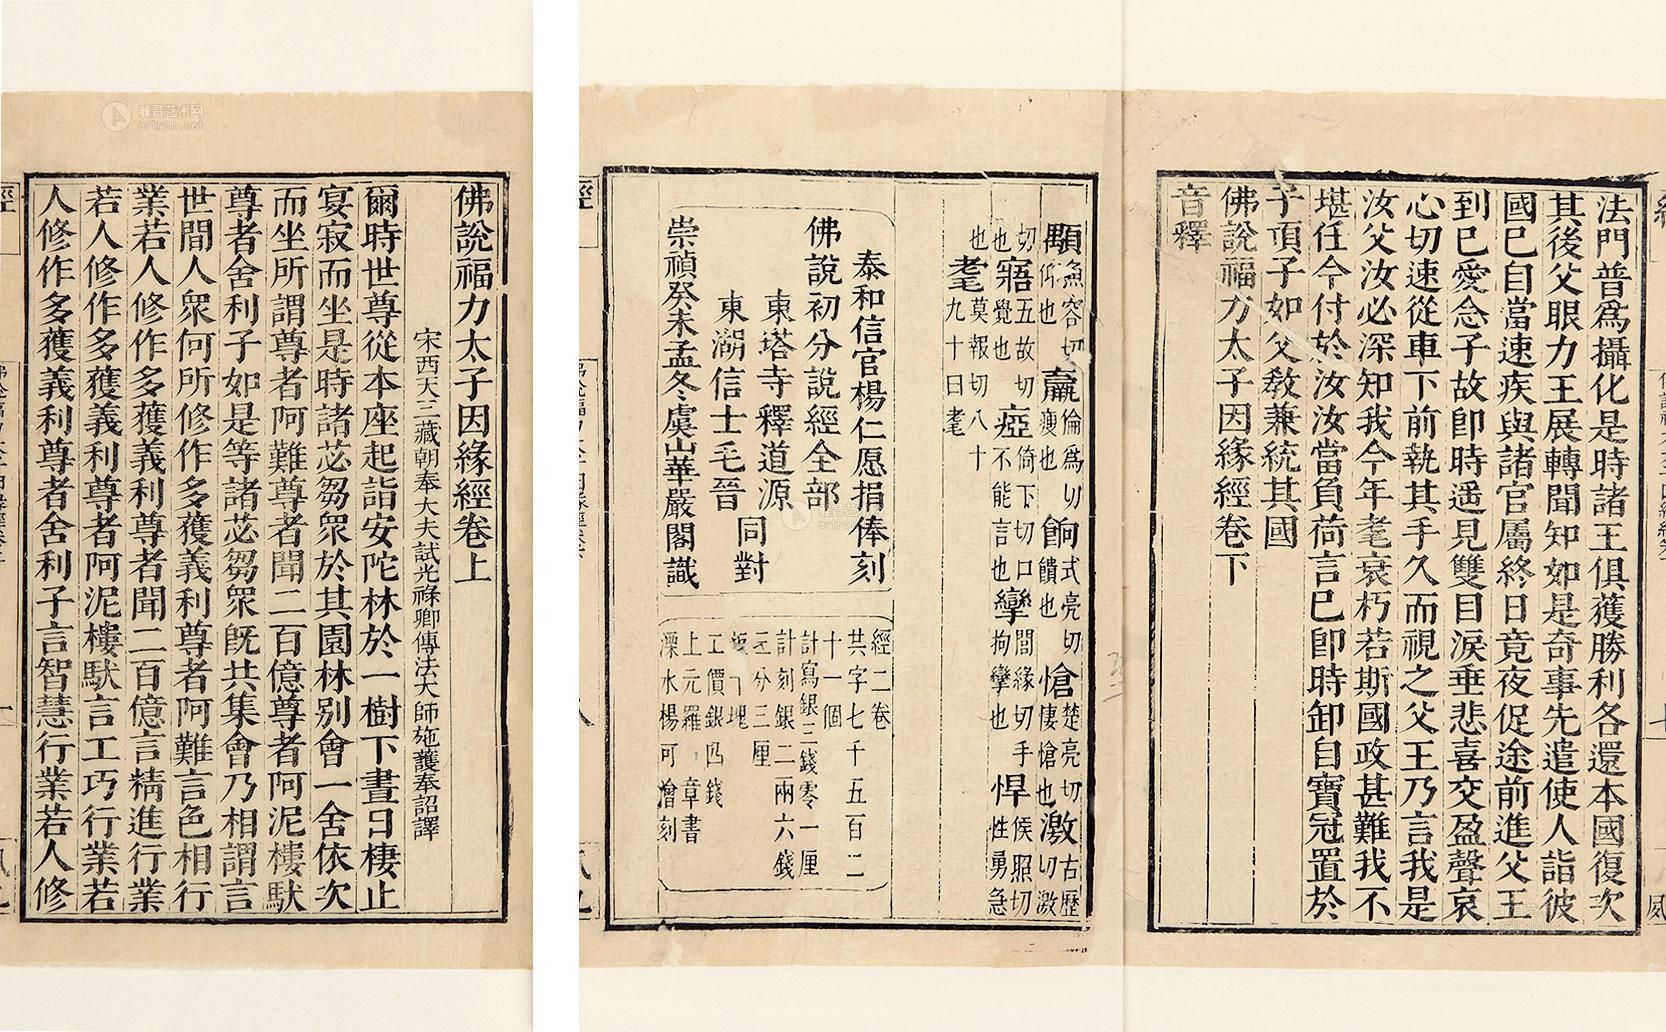 佛說福力太子因緣經卷上
宋西天三藏朝奉大夫試光祿卿傳法大師施護奉詔譯
爾時世尊從本座起詣安陀林於一樹下晝日棲止
宴寂而坐是時諸苾芻眾於其園林別會一舍依次
而坐所謂尊者阿難尊者聞二百億尊者阿泥樓馱
尊者舍利子如是等諸苾芻眾旣共集會乃相謂言
世間人眾何所修作多獲義利尊者阿難言色相行
業若人修作多獲義利尊者聞二百億言精進行業
若人修作多獲義利尊者阿泥樓馱言工巧行業若
人修作多獲義利尊者舍利子言智慧行業若人修
法門普為攝化是時諸王俱獲勝利各還本國復次
其後父眼力王展轉聞知如是奇事先遣使人詣彼
國已自當速疾與諸官屬終日竟夜促途前進父王
到已愛念子故卽時遥見雙目淚垂悲喜交盈聲哀
心切速從車下前執其手久而視之父王乃言我是
汝父汝必深知我今年耄衰朽若斯國政甚難我不
堪任今付於汝汝當負荷言已卽時卸自寶冠置於
子頂子如父敎兼統其國
佛說福力太子因緣經卷下
音釋
顒魚容切仰也 羸倫爲切瘦也 餉式亮切饋也 愴楚亮切悽愴也 激古歷切激
切也 寤五故切覺也 瘂倚下切口不能言也 攣閭緣切手拘攣也 悍侯照切性勇急
也 耄莫報切八十九十曰耄
泰和信官楊仁愿捐俸刻
佛說初分說經全部
東塔寺釋道源
東湖信士毛晉
同對
崇禎癸未孟冬虞山華嚴閣識
經二卷
共字七千五百二
十一個
計寫銀三錢零一厘
計刻銀二兩六錢
三分三厘
板 塊
工價銀四錢
上元羅 章書
溧水楊可澮刻
雅昌艺术网
artron.net